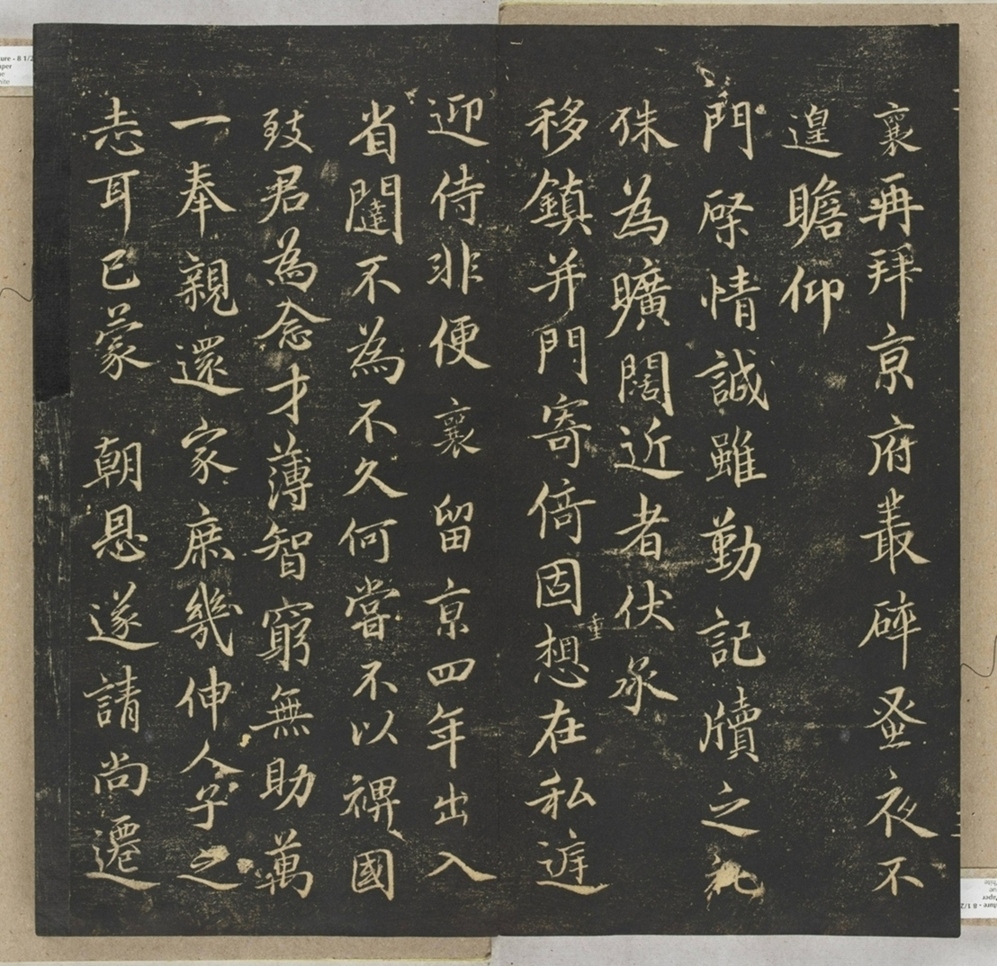 襄再拜京府叢碎蚤夜不
遑瞻仰
門棨情誠雖勤記牘之礼
殊為曠闊近者伏承
移鎮并門寄倚固重想在私
迎侍非便襄留京四年出入
省闥不為不久何嘗不以裨國
致君為念才薄智窮無助萬
一奉親還家庶幾伸人子之
志耳已蒙 朝恩遂請尚遷
ture - 8 1/2
aper